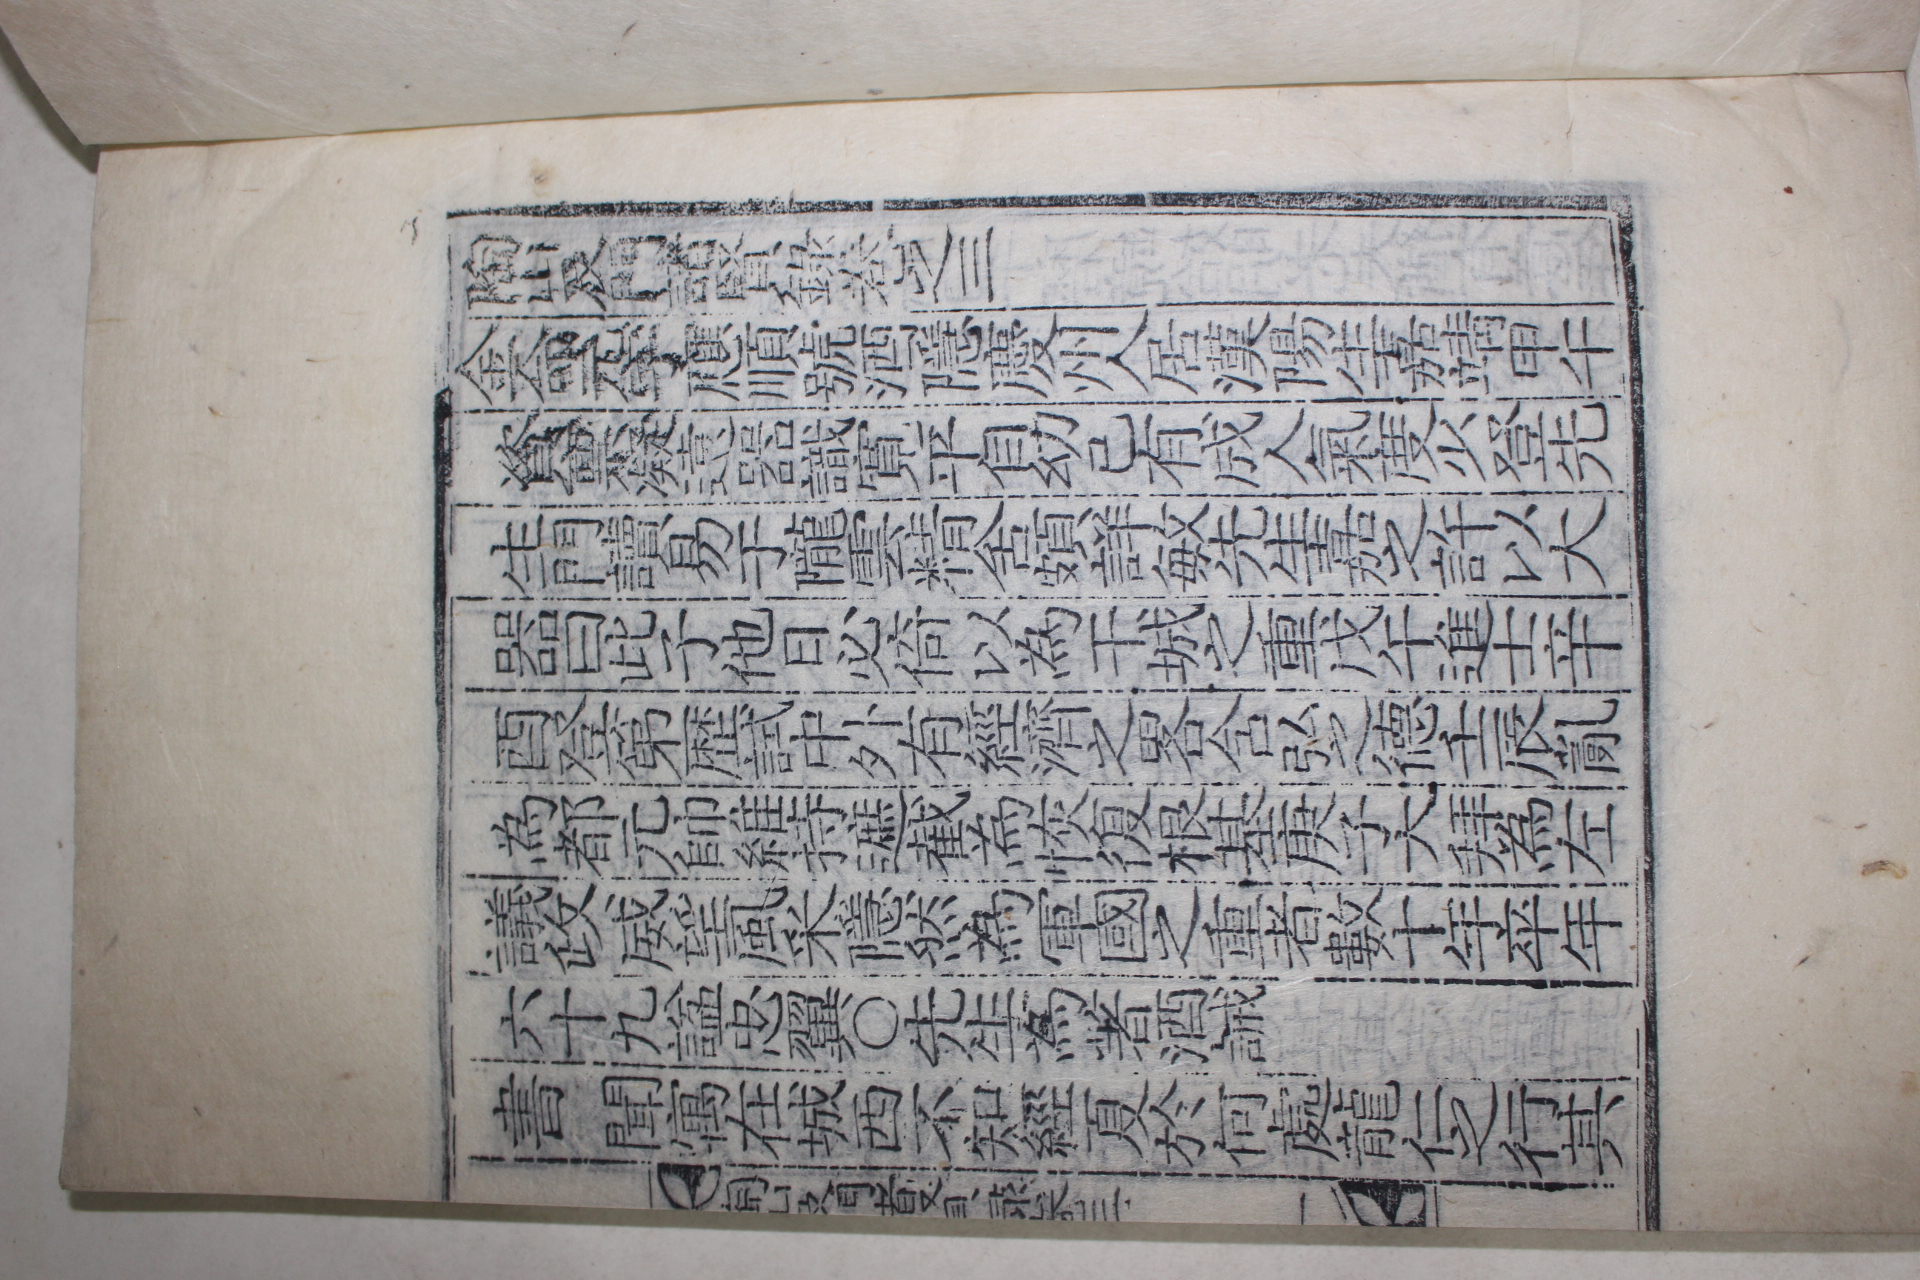 陶山及門諸賢錄卷之三
金命元字應順號酒隱慶州人居漢陽生嘉靖甲午
資稟凝遠器識寬平自幼已有成人氣度少登先
生門讀易于隴雲精舍頗詳敏先生嘉之許以大
器曰此子他日必倚以爲干城之重戊午進士辛
酉登第歷試中外有經濟之畧含弘之德壬辰亂
為都元帥維持遮截為恢復根基庚子大拜為左
議政威望風采隱然為軍國之重者數十年卒年
六十九諡忠翼○先生為著酒誡
書 聞寓在城西不知經夏於何處龍仁之行其
陶山及門諸賢錄卷三 一